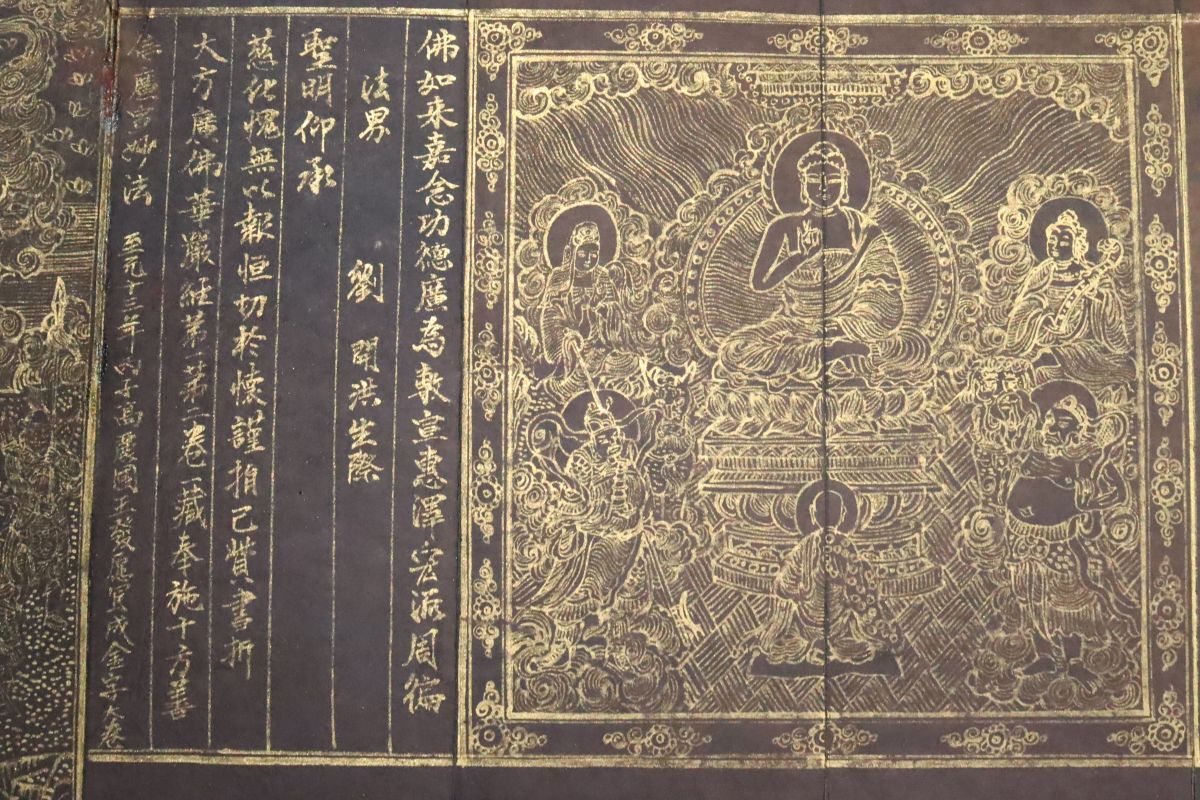 佛如来嘉念功德廣為敷宣惠澤宏派周徧
法界 劉 明洪生際
聖明仰承
慈化愧無以報恒切於懷謹捐己貲書折
大方廣佛華嚴經第一第二卷一藏奉施十方善
妙法 至元十三年丙子高麗國王發應寅成金字大卷